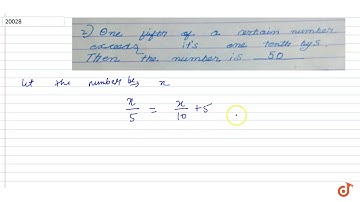 20028
2) One fifth of a certain number
exceeds it's one tenth by 5.
Then the number is 50
Let the number be, x
x/5 = x/10 + 5